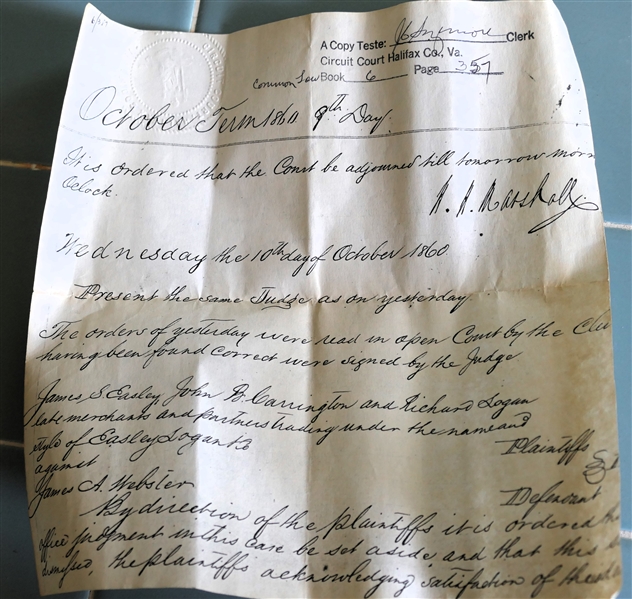 A Copy Teste: Clerk
Circuit Court Halifax Co., Va.
Common Law Book 6 Page 357
October Term 1860 9th Day.
It is ordered that the Court be adjourned till tomorrow morn
Oclock.
Wednesday the 10th day of October 1860.
Present the same Judge as on yesterday.
The orders of yesterday were read in open Court by the Cle
having been found correct were signed by the Judge
James S Easley John B. Carrington and Richard Logan
late merchants and partners trading under the name and
style of Easley Logan & Co Plaintiffs
against
James A. Webster Defendant
By direction of the plaintiffs it is ordered
office judgment in this case be set aside, and that this
the plaintiffs acknowledging satisfaction of the